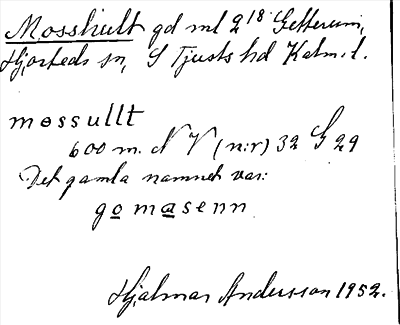 Mosshult gd ml 2¹⁸ Getterum,
Hjorteds sn, S Tjusts hd Kalm. l.
mossullt
600 m. N V (n:r) 32 G 29
Det gamla namnet var:
gomasenn
Hjalmar Andersson 1952.